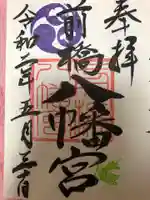 奉拝
前橋八幡宮
令和二年五月三日